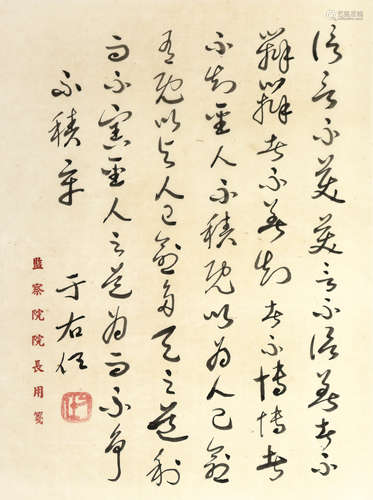 信言不美美言不信善者不
辯辯者不善知者不博博者
不知聖人不積既以為人己愈
有既以與人己愈多天之道利
而不害聖人之道為而不爭
不積章
于右任
監察院院長用箋